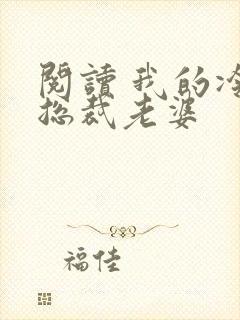 閱讀我的冷
總裁老婆
福佳